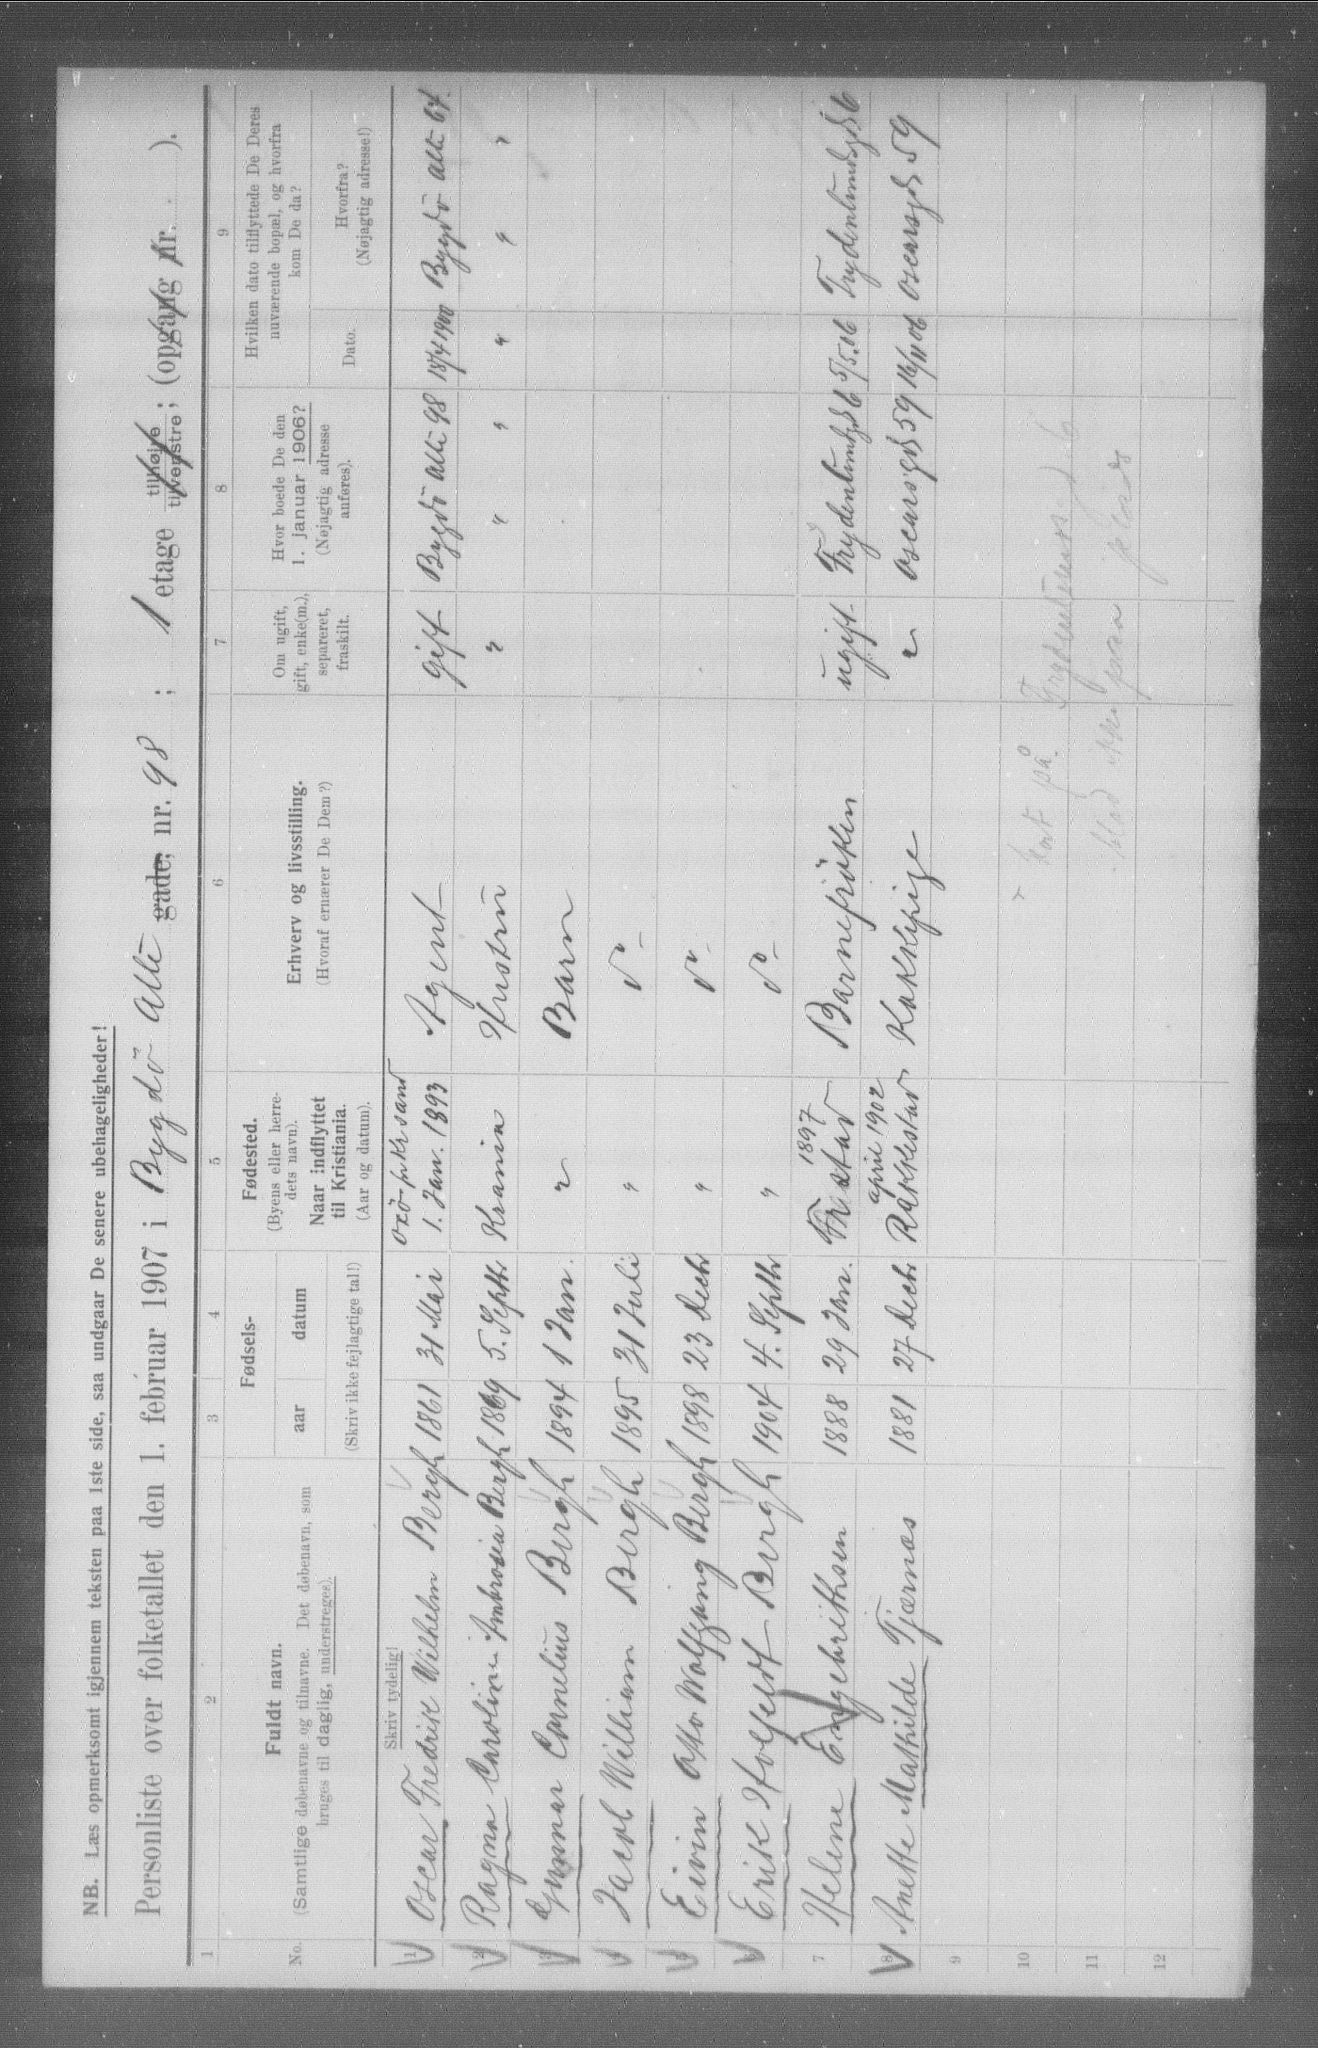 NB. Læs opmerksomt igjennem teksten paa 1ste side, saa undgaar De senere ubehageligheder!
Personliste over folketallet den 1. februar 1907 i Bygdö Allé gade, nr. 98 ; 1 etage tilhøjre tilvenstre ; (opgang nr. ).
1 2 3 4 5 6 7 8 9
No.
Fuldt navn.
(Samtlige døbenavne og tilnavne. Det døbenavn, som
bruges til daglig, understreges).
Fødsels-
aar datum
(Skriv ikke fejlagtige tal!)
Fødested.
(Byens eller herre-
dets navn).
Naar indflyttet
til Kristiania.
(Aar og datum).
Erhverv og livsstilling.
(Hvoraf ernærer De Dem?)
Om ugift,
gift, enke(m.),
separeret,
fraskilt.
Hvor boede De den
1. januar 1906?
(Nøjagtig adresse
anføres).
Hvilken dato tilflyttede De Deres
nuværende bopæl, og hvorfra
kom De da?
Dato.
Hvorfra?
(Nøjagtig adresse!)
Skriv tydelig!
1 Oscar Fredrik Wilhelm Bergh 1861 31 Mai 1. Jan. 1893 Agent gift Bygdö allé 98 18/4 1900 Bygdö allé 64.
2 Ragna Caroline Bergh 1869 5. Septbr Krania Hustru " " " " " "
3 Gunnar Cornelius Bergh 1894 1 Jan. " Barn
4 Jacob William Bergh 1895 31 Juli " do
5 Eivin Otto Wolfgang Bergh 1898 23 Decbr " do
6 Erik Holfeldt Bergh 1904 4. Septbr " do
7 Helene Engebrithsen 1888 29 Jan. 1897 Barnefrøken ugift 5/5.06
8 Anette Mathilde Tjærnæs 1881 27 Decbr april 1902 Rakkestad Kokkepige " Oscarsgd 59 16/11 06 Oscarsgd 59
9
10 på
11
12